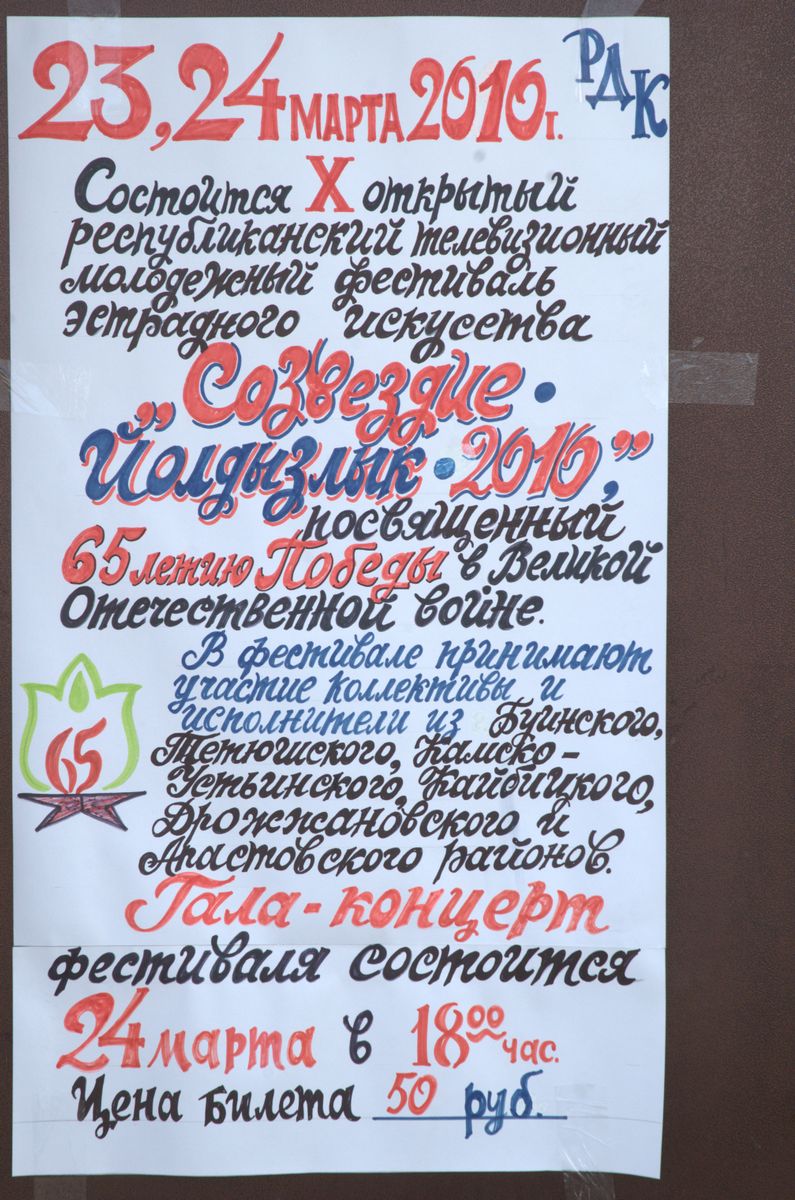 23,24 МАРТА 2010г.
РДК
Состоится X открытый
республиканский телевизионный
молодежный фестиваль
эстрадного искусства
„Созвездие •
Йолдызлык • 2010,”
посвященный
65летию Победы в Великой
Отечественной войне.
В фестивале принимают
участие коллективы и
исполнители из Буинского,
Тетюшского, Камско-
Устьинского, Кайбицкого,
Дрожжановского и
Апастовского районов.
65
Гала-концерт
фестиваля состоится
24 марта в 18 00 час.
Цена билета 50 руб.